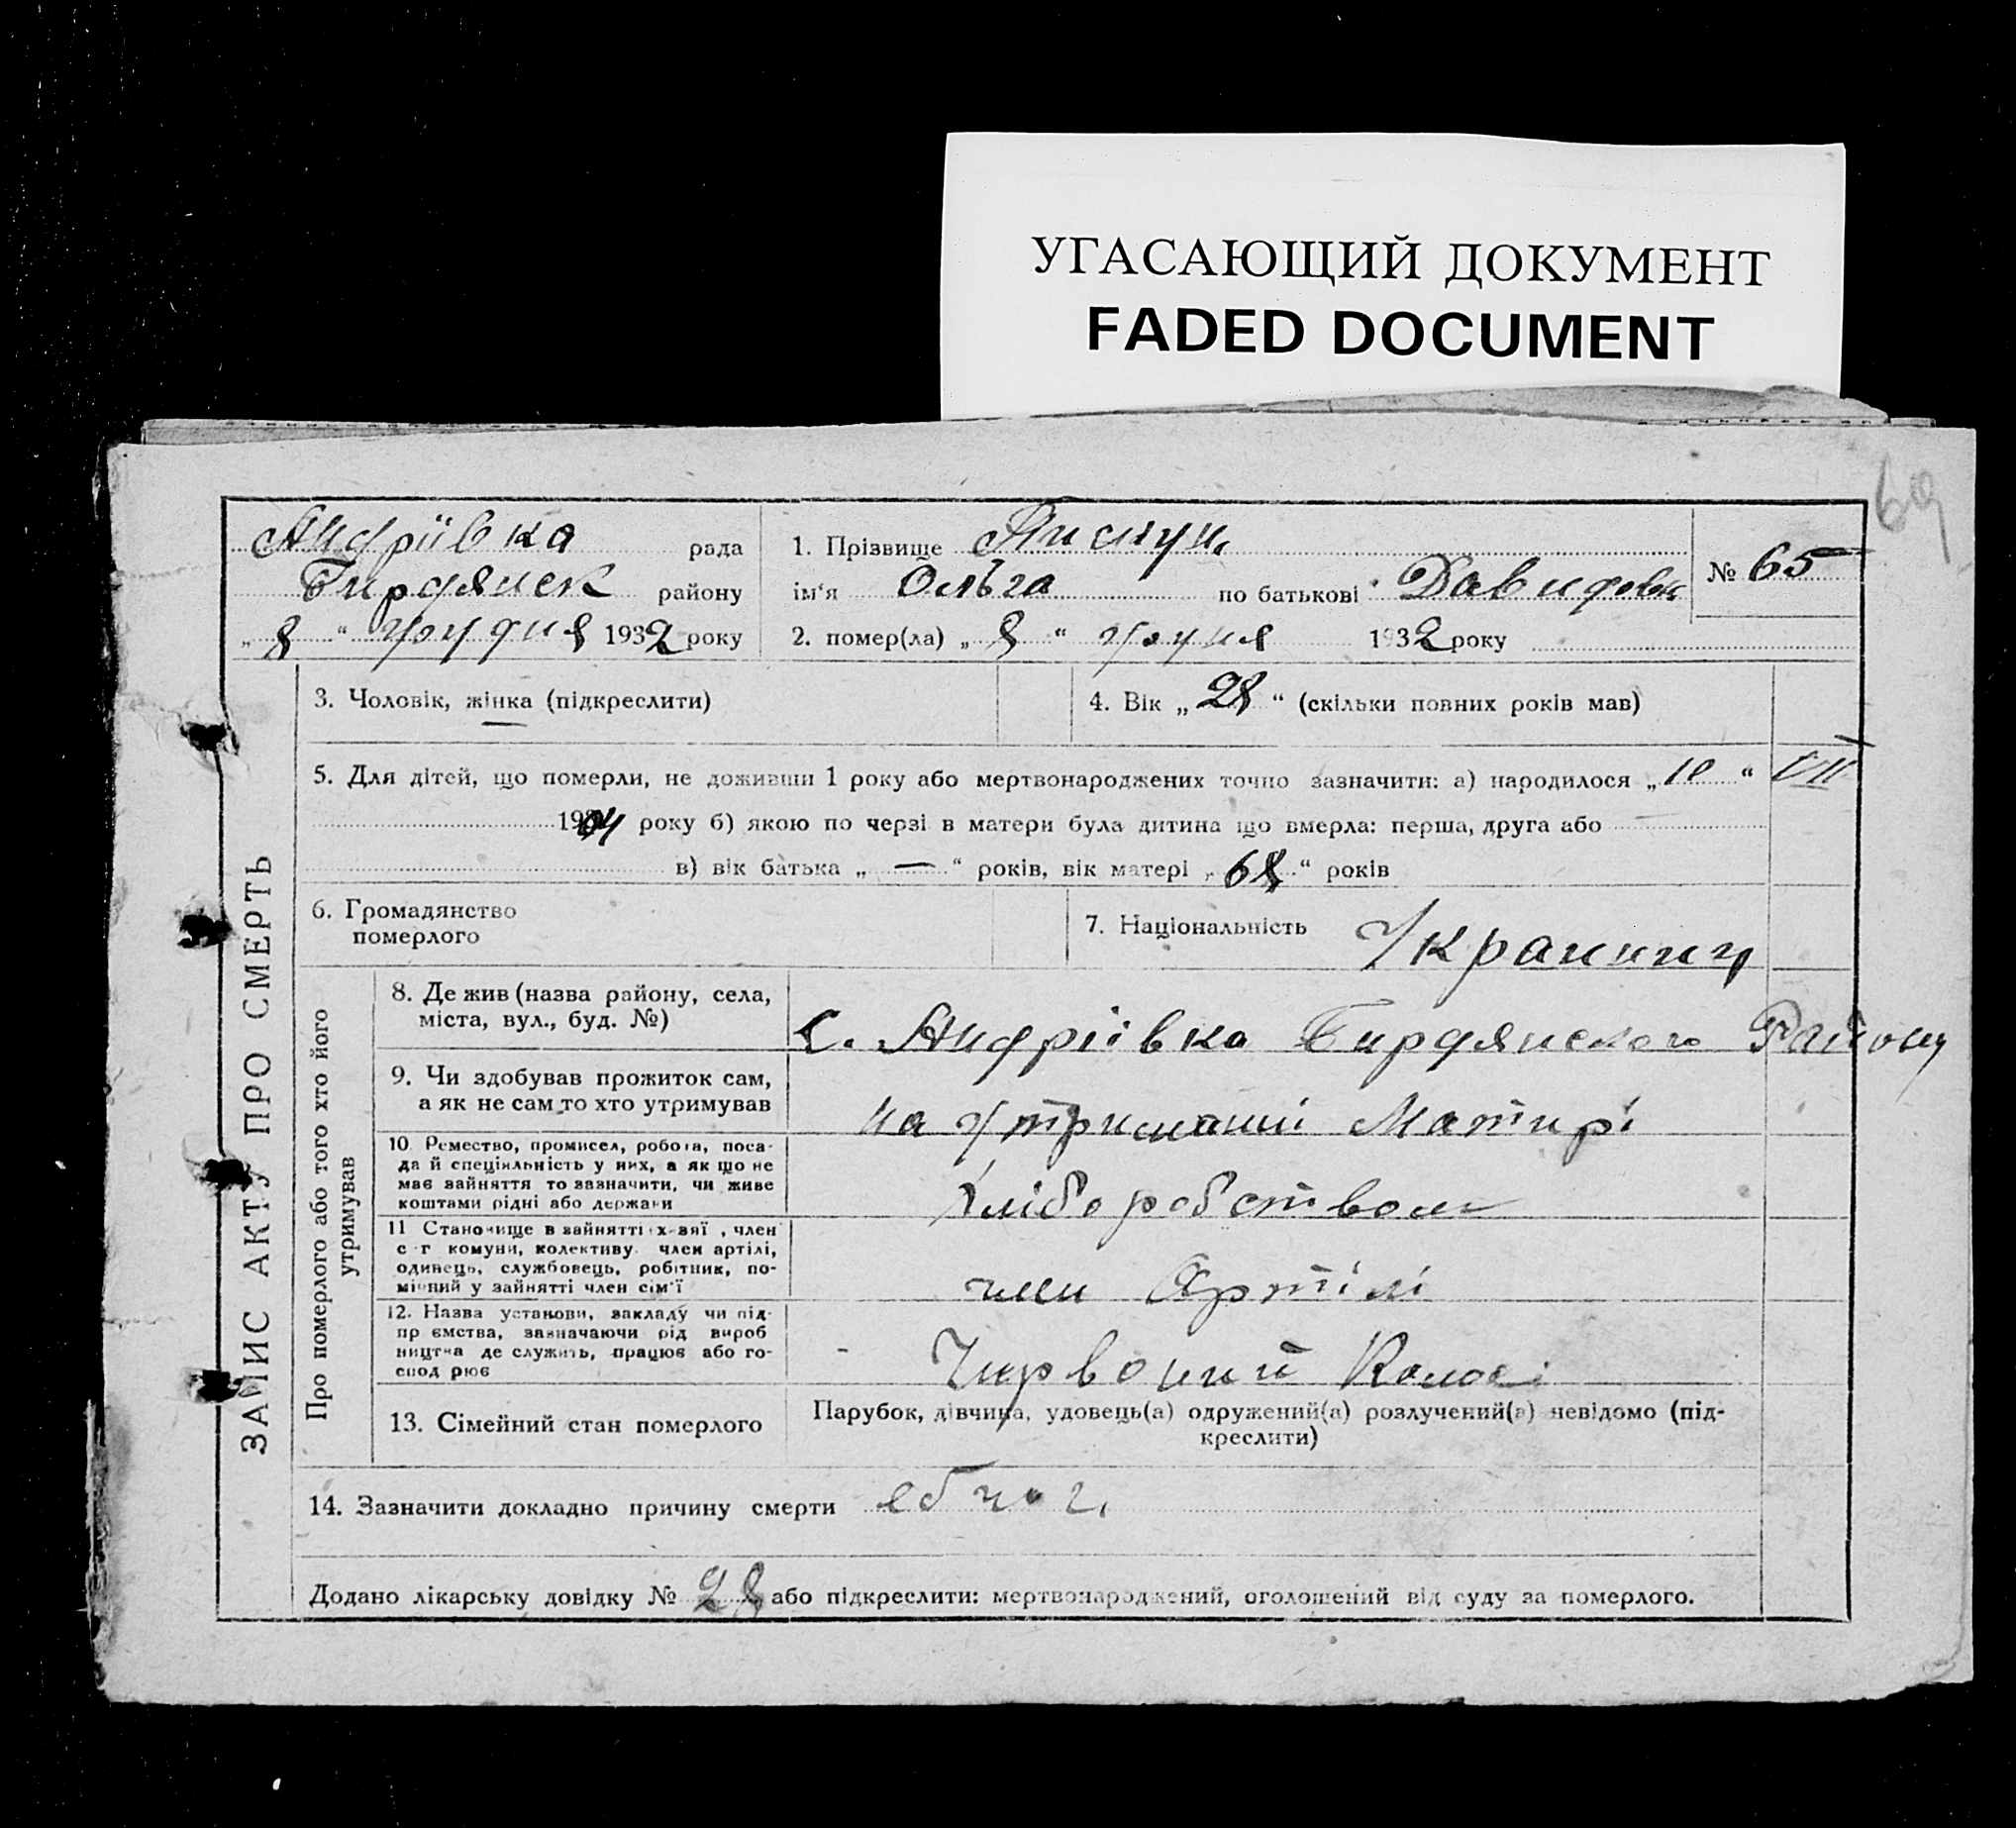 УГАСАЮЩИЙ ДОКУМЕНТ
FADED DOCUMENT
69
Андріївка рада
Бирдянск району
„ 8 “ грудня 1932 року
1. Прізвище
ім'я Ольга по батькові Давидовн
2. помер(ла) „ 8 “ 1932 року
№ 65
ЗАПИС АКТУ ПРО СМЕРТЬ
3. Чоловік, жінка (підкреслити)
4. Вік „ 28 “ (скільки повних років мав)
5. Для дітей, що померли, не доживши 1 року або мертвонароджених точно зазначити: а) народилося „ 10 “ VII
04 року б) якою по черзі в матери була дитина що вмерла: перша, друга або
в) вік батька „ — “ років, вік матері „ 68 “ років
6. Громадянство
померлого
7. Національність
Про померлого або того хто його
утримував
8. Де жив (назва району, села,
міста, вул., буд. №)
с. Андріівка Бирдянского Району
9. Чи здобував прожиток сам,
а як не сам то хто утримував
на утриманні Матирі
10. Ремество, промисел, робота, поса-
да й спеціяльність у них, а як що не
має зайняття то зазначити, чи живе
коштами рідні або держави
Хліборобством
11 Становище в зайнятті , член
с-г комуни, колективу член артілі,
одинець, службовець, робітник, по-
мічний у зайнятті член сім'ї
член Артілі
12. Назва установи, закладу чи під-
пр ємства, зазначаючи рід вироб
ництва де служить, працює або го-
спод рює
Чирвоний Колос
13. Сімейний стан померлого
Парубок, дівчина, удовець(а) одружений(а) розлучений(а) невідомо (під-
креслити)
14. Зазначити докладно причину смерти
Додано лікарську довідку № 28 або підкреслити: мертвонароджений, оголошений від суду за померлого.